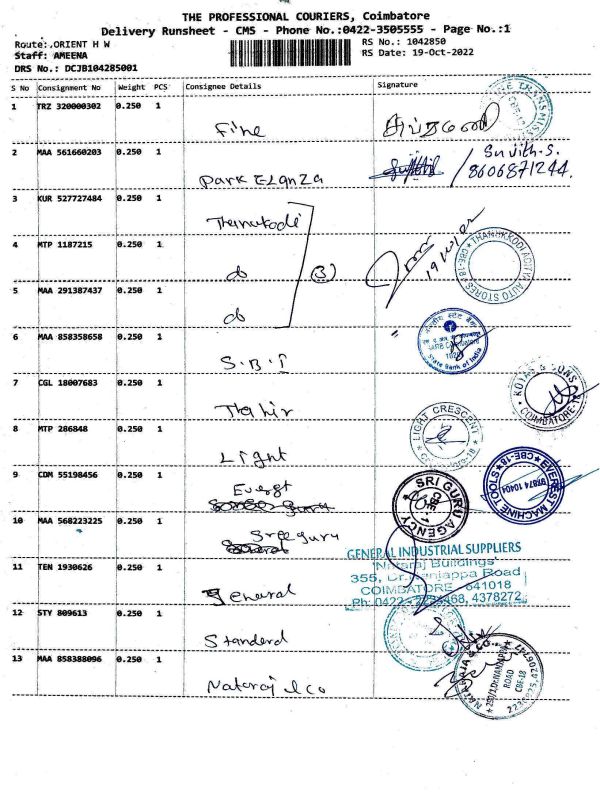 THE PROFESSIONAL COURIERS, Coimbatore
Delivery Runsheet - CMS - Phone No.:0422-3505555 - Page No.:1
Route:.ORIENT H W
Staff: AMEENA
DRS No.: DCJB104285001
RS No.: 1042850
RS Date: 19-Oct-2022
S No Consignment No Weight PCS Consignee Details Signature
1 TRZ 320000302 0.250 1 Fine
2 MAA 561660203 0.250 1 Park Elanza Sujith.S. / 8606871244
3 KUR 527727484 0.250 1
4 MTP 1187215 0.250 1 do (3)
5 MAA 291387437 0.250 1 do
THANUKKODI ADITYA AUTO STORES CBE-18
6 MAA 858358658 0.250 1 S.B.I
State Bank of India
7 CGL 18007683 0.250 1 Tahir
KOTAS & SONS COIMBATORE
8 MTP 286848 0.250 1 Light
LIGHT CRESCENT
9 CDM 55198456 0.250 1 Everest
EVEREST MACHINE TOOLS CBE-18
97874 10404
10 MAA 568223225 0.250 1 Sree guru
SRI GURU AGENCY CBE-1
11 TEN 1930626 0.250 1 General
GENERAL INDUSTRIAL SUPPLIERS
"Nataraj Buildings"
355, Dr.Nanjappa Road
COIMBATORE - 641018
4378272
12 STY 809613 0.250 1 Standerd
13 MAA 858388096 0.250 1 Nataraj & Co
NATARAJA & CO.
ROAD
CBE-18